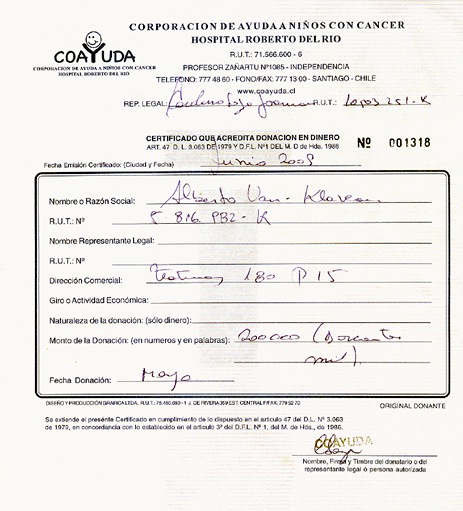 COAYUDA
CORPORACION DE AYUDA A NIÑOS CON CANCER
HOSPITAL ROBERTO DEL RIO
CORPORACION DE AYUDA A NIÑOS CON CANCER
HOSPITAL ROBERTO DEL RIO
R.U.T.: 71.566.600 - 6
PROFESOR ZAÑARTU Nº1085 - INDEPENDENCIA
TELEFONO: 777 48 60 - FONO/FAX: 777 13 00 - SANTIAGO - CHILE
www.coayuda.cl
REP. LEGAL: R.U.T.:
CERTIFICADO QUE ACREDITA DONACION EN DINERO
ART. 47 D.L. 3.063 DE 1979 Y D.F.L. Nº1 DEL M. D de Hda. 1986
Nº 001318
Fecha Emisión Certificado: (Ciudad y Fecha) Junio 2009
Nombre o Razón Social: Alberto Van - Klaveren
R.U.T.: Nº 5 816 982 - K
Nombre Representante Legal:
R.U.T.: Nº
Dirección Comercial: Teatinos 180 P 15
Giro o Actividad Económica:
Naturaleza de la donación: (sólo dinero):
Monto de la Donación: (en numeros y en palabras): 200000 (Doscientos
mil).
Fecha Donación: Mayo
ORIGINAL DONANTE
Se extiende el presente Certificado en cumplimiento de lo dispuesto en el artículo 47 del D.L. Nº 3.063
de 1979, en concordancia con lo establecido en el artículo 3º del D.F.L. Nº 1, del M. de Hda., de 1986.
COAYUDA
Nombre, Firma y Timbre del donatario o del
representante legal ó persona autorizada